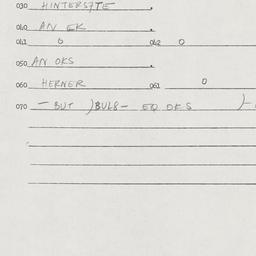 030 HINTERSTE
040 AN EK
041 0 042 0
050 AN OKS
060 HERNER 061 0
070 - BUT )BULS- EQ OKS )-